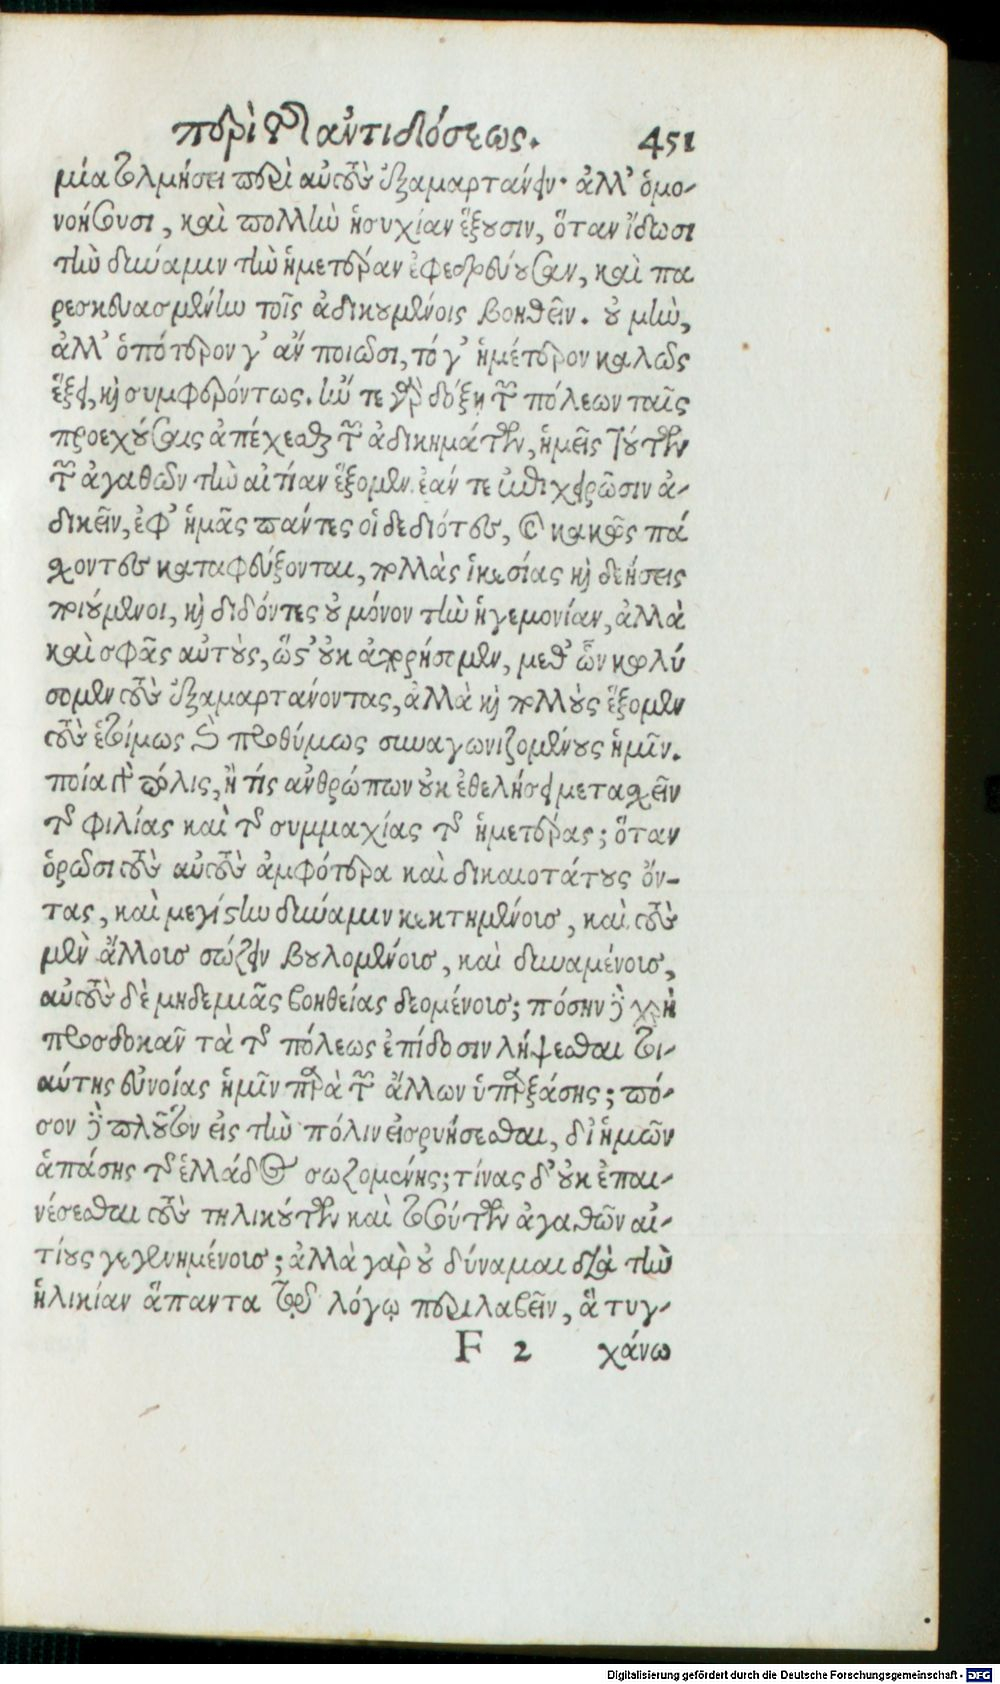 περὶ τῆς ἀντιδόσεως. 451
μία τολμήσει περὶ αὐτοὺς ἐξαμαρτάνειν· ἀλλ' ὁμο-
νοήσουσι, καὶ πολλὴν ἡσυχίαν ἕξουσιν, ὅταν ἴδωσι
τὴν δύναμιν τὴν ἡμετέραν ἐφεδρεύουσαν, καὶ πα
ρεσκευασμένην τοῖς ἀδικουμένοις βοηθεῖν. οὐ μὴν,
ἀλλ' ὁπότερον γ' ἂν ποιῶσι, τό γ' ἡμέτερον καλῶς
ἕξει, καὶ συμφερόντως. ἤν τε γὰρ δόξῃ τῶν πόλεων ταῖς
προεχούσαις ἀπέχεσθαι τῶν ἀδικημάτων, ἡμεῖς τούτων
τῶν ἀγαθῶν τὴν αἰτίαν ἕξομεν. ἐάν τε ἐπιχειρῶσιν ἀ-
δικεῖν, ἐφ' ἡμᾶς πάντες οἱ δεδιότες, καὶ κακῶς πά
σχοντες καταφεύξονται, πολλὰς ἱκεσίας καὶ δεήσεις
ποιούμενοι, καὶ διδόντες οὐ μόνον τὴν ἡγεμονίαν, ἀλλὰ
καὶ σφᾶς αὐτούς, ὥστ' οὐκ ἀπορήσομεν, μεθ' ὧν κωλύ
σομεν τοὺς ἐξαμαρτάνοντας, ἀλλὰ καὶ πολλοὺς ἕξομεν
τοὺς ἑτοίμως καὶ προθύμως συναγωνιζομένους ἡμῖν.
ποία γὰρ πόλις, ἢ τίς ἀνθρώπων οὐκ ἐθελήσει μετασχεῖν
τῆς φιλίας καὶ τῆς συμμαχίας τῆς ἡμετέρας; ὅταν
ὁρῶσι τοὺς αὐτοὺς ἀμφότερα καὶ δικαιοτάτους ὄν-
τας, καὶ μεγίστην δύναμιν κεκτημένοις, καὶ τοὺς
μὲν ἄλλοις σώζειν βουλομένοις, καὶ δυναμένοις,
αὐτοὺς δὲ μηδεμιᾶς βοηθείας δεομένοις; πόσην δὲ χρὴ
προσδοκᾶν τὰ τῆς πόλεως ἐπίδοσιν λήψεσθαι τοι-
αύτης εὐνοίας ἡμῖν παρὰ τῶν ἄλλων ὑπαρξάσης; πό-
σον δὲ πλοῦτον εἰς τὴν πόλιν εἰσρυήσεσθαι, δι' ἡμῶν
ἁπάσης τῆς ἑλλάδος σωζομένης; τίνας δ' οὐκ ἐπαι-
νέσεσθαι τοὺς τηλικούτων καὶ τοσούτων ἀγαθῶν αἰ-
τίους γεγενημένοις; ἀλλὰ γὰρ οὐ δύναμαι διὰ τὴν
ἡλικίαν ἅπαντα τῷ λόγῳ περιλαβεῖν, ἃ τυγ-
F 2 χάνω
Digitalisierung gefördert durch die Deutsche Forschungsgemeinschaft - DFG